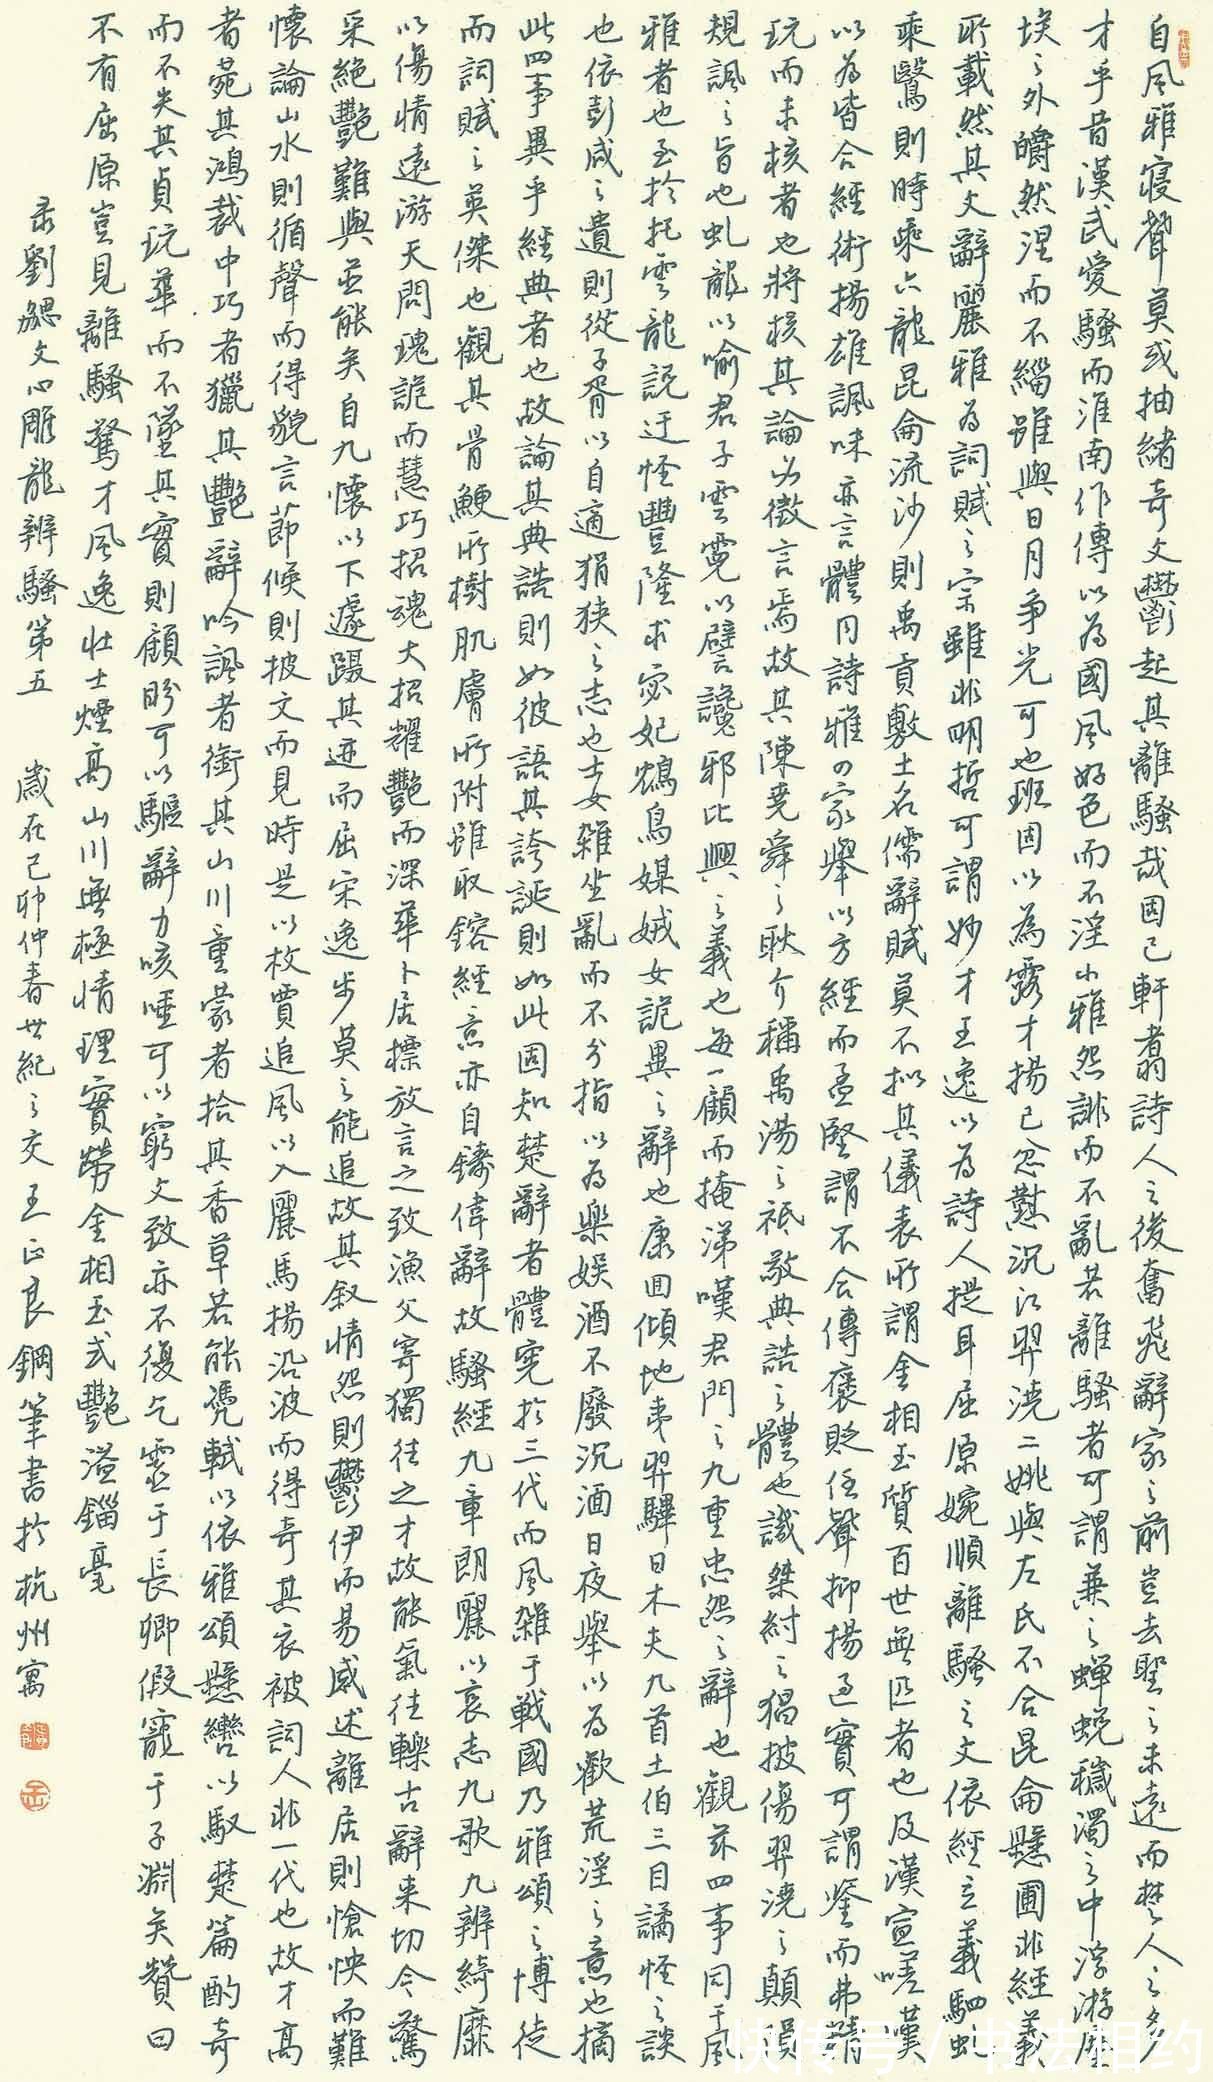 自風雅寢聲莫或抽緒奇文鬱起其離騷哉固已軒翥詩人之後奮飛辭家之前豈去聖之未遠而楚人之多
才乎昔漢武愛騷而淮南作傳以為國風好色而不淫小雅怨誹而不亂若離騷者可謂兼之蟬蛻穢濁之中浮游塵
埃之外皭然涅而不緇雖與日月爭光可也班固以為露才揚己忿懟沉江羿澆二姚與左氏不合昆侖懸圃非經義
所載然其文辭麗雅為詞賦之宗雖非明哲可謂妙才王逸以為詩人提耳屈原婉順離騷之文依經立義駟虬
乘鷖則時乘六龍昆侖流沙則禹貢敷土名儒辭賦莫不擬其儀表所謂金相玉質百世無匹者也及漢宣嗟嘆
以為皆合經術揚雄諷味亦言體同詩雅四家舉以方經而孟堅謂不合傳褒貶任聲抑揚過實可謂鑒而弗精
玩而未核者也將核其論必徵言焉故其陳堯舜之耿介稱禹湯之祗敬典誥之體也譏桀紂之猖披傷羿澆之顛隕
規諷之旨也虬龍以喻君子雲霓以譬讒邪比興之義也每一顧而掩涕嘆君門之九重忠怨之辭也觀茲四事同于風
雅者也至於托雲龍說迂怪豐隆求宓妃鴆鳥媒娀女詭異之辭也康回傾地夷羿彃日木夫九首土伯三目譎怪之談
也依彭咸之遺則從子胥以自適狷狹之志也士女雜坐亂而不分指以為樂娛酒不廢沉湎日夜舉以為歡荒淫之意也摘
此四事異乎經典者也故論其典誥則如彼語其誇誕則如此固知楚辭者體憲於三代而風雜于戰國乃雅頌之博徒
而詞賦之英傑也觀其骨鯁所樹肌膚所附雖取鎔經意亦自鑄偉辭故騷經九章朗麗以哀志九歌九辨綺靡
以傷情遠游天問瑰詭而慧巧招魂大招耀艷而深華卜居標放言之致漁父寄獨往之才故能氣往轢古辭來切今驚
采絕艷難與並能矣自九懷以下遽躡其迹而屈宋逸步莫之能追故其叙情怨則鬱伊而易感述離居則愴怏而難
懷論山水則循聲而得貌言節候則披文而見時是以枚賈追風以入麗馬揚沿波而得奇其衣被詞人非一代也故才高
者菀其鴻裁中巧者獵其艷辭吟諷者銜其山川童蒙者拾其香草若能憑軾以依雅頌懸轡以馭楚篇酌奇
而不失其貞玩華而不墜其實則顧盼可以驅辭力咳唾可以窮文致亦不復乞靈于長卿假寵于子淵矣贊曰
不有屈原豈見離騷驚才風逸壯士煙高山川無極情理實勞金相玉式艷溢錙毫
录劉勰文心雕龍辨騷第五 歲在己卯仲春世紀之交王正良鋼筆書於杭州寓
快传号/书法相约